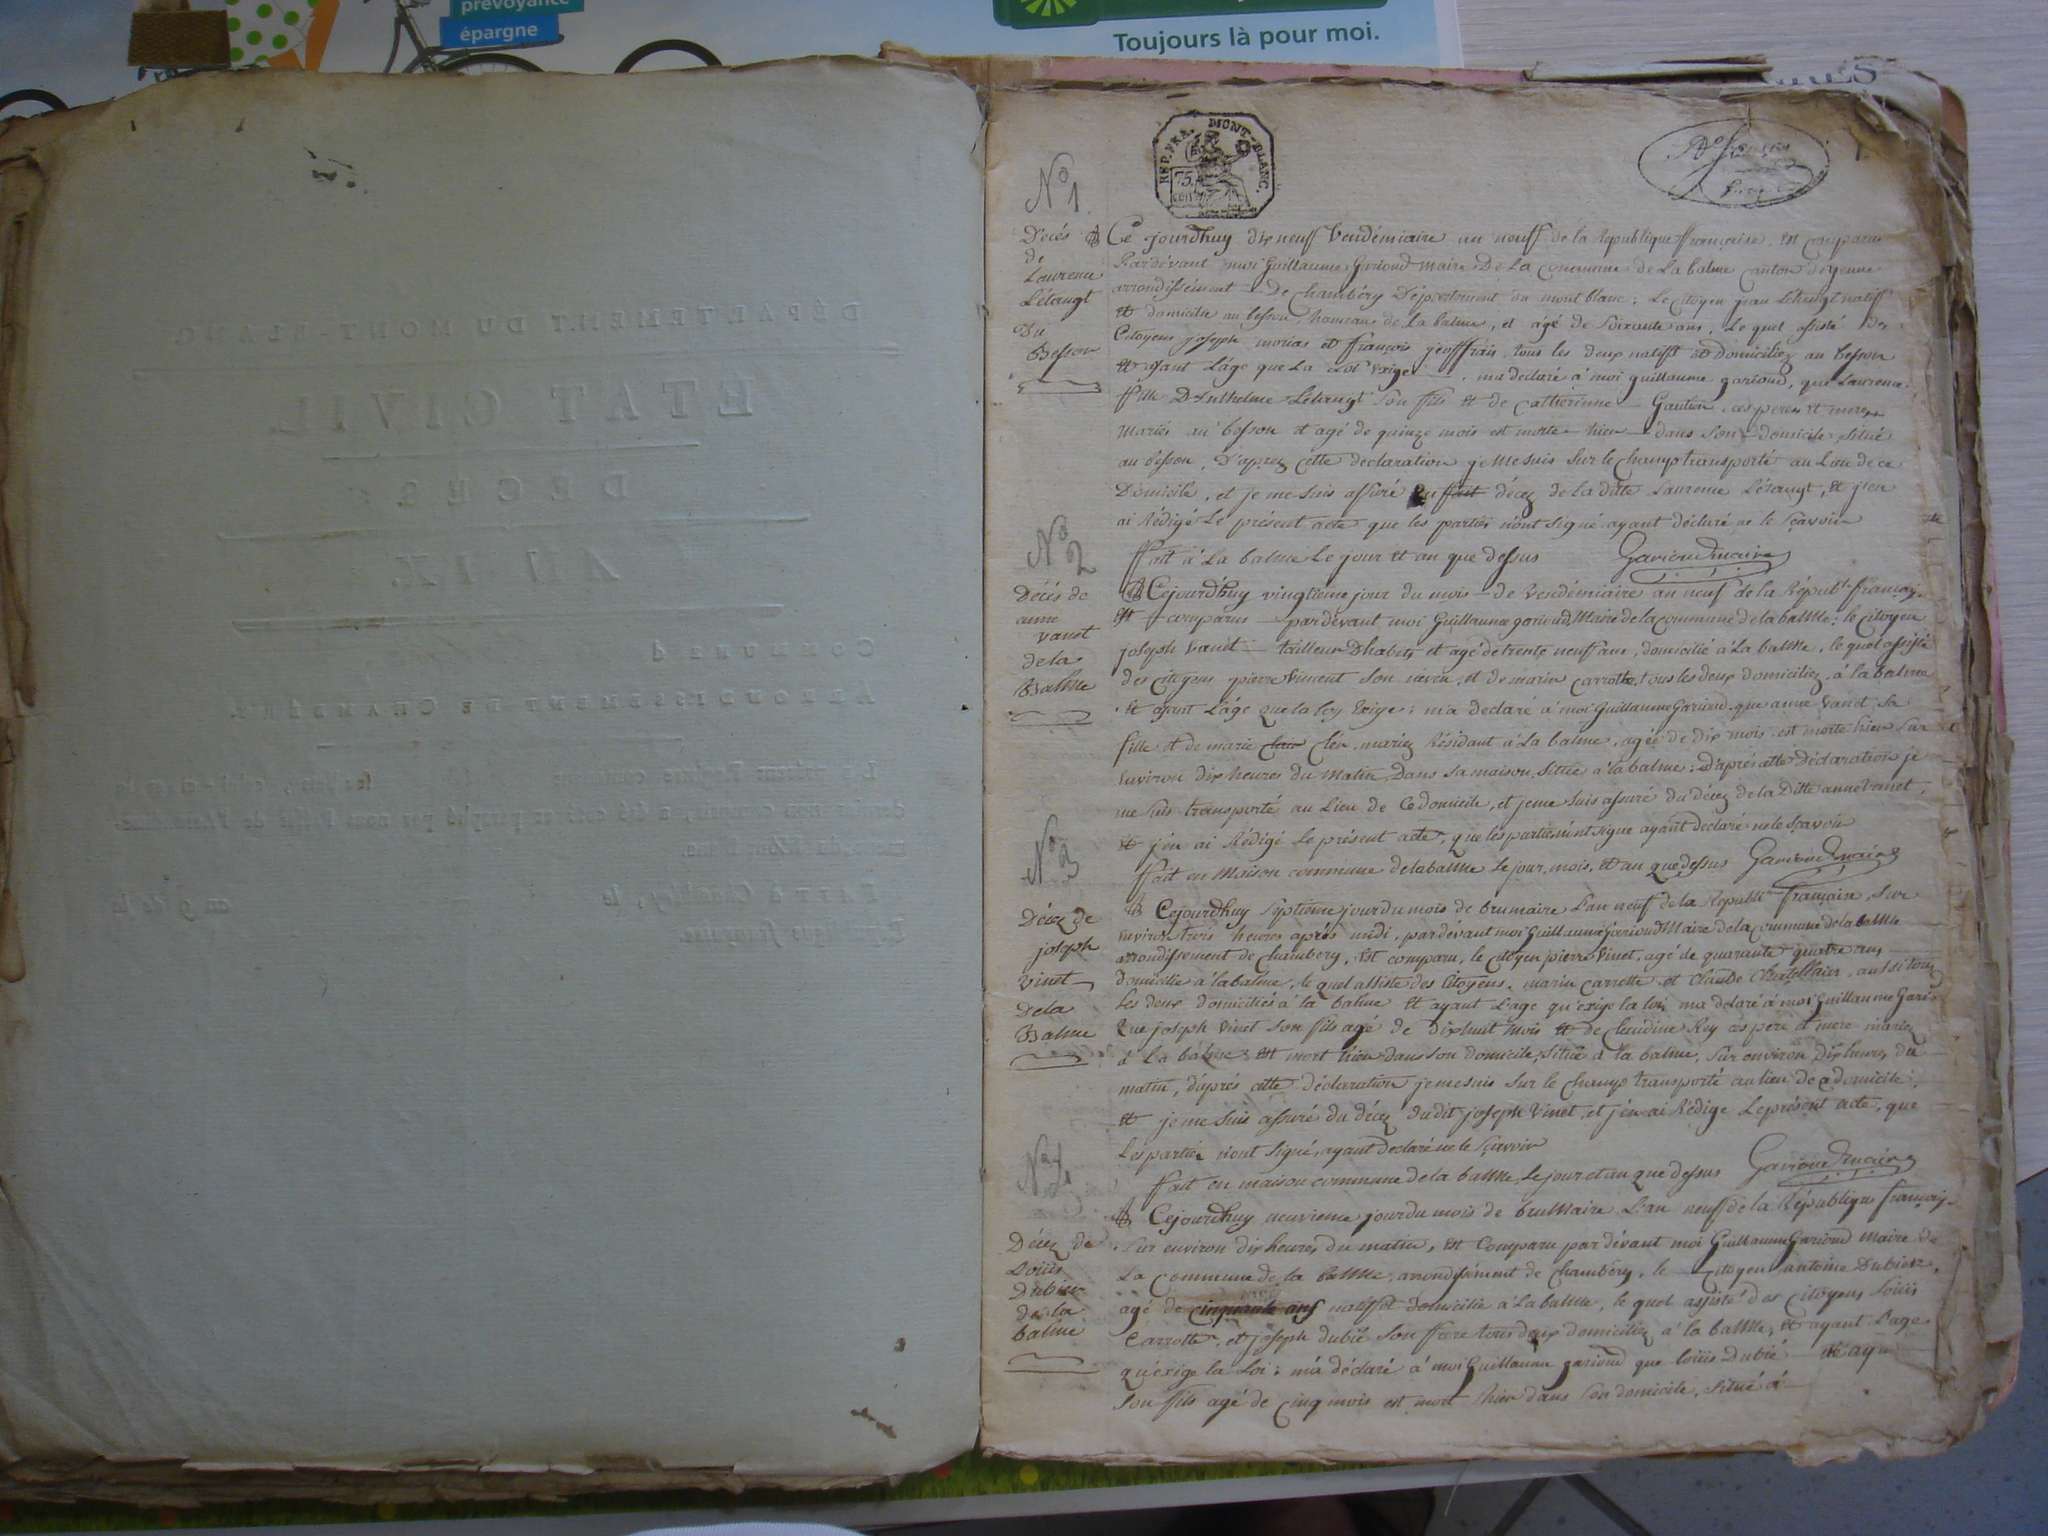 prévoyance
épargne
Toujours là pour moi.
DÉPARTEMENT DU MONT-BLANC
ETAT CIVIL
DECES
AN IX
COMMUNE d
ARRONDISSEMENT DE CHAMBERY.
FAIT à Chambéry, le an 9 de la
REP. FRA. MONT-BLANC.
75
No 1
Décés
de
Laurence
Létaugt
Du
Besson
Ce jourdhuy dix neuff Vendémiaire an neuff de la République francaise, est comparu
Pardévant moi Guillaume Garioud maire De La Commune de La balme canton deyenne
arrondissement De Chambéry Département du mont blanc; Le Citoyen jean Létaugt natiff
et domicilié au besson, hameau de La balme, et agé de Soixante ans, Le quel assisté des
Citoyens joseph et françois geoffrais, tous les deux natifft et domiciliez au besson
et ayant Lâge que La Loi exige, ma declaré à moi guillaume garioud, que Laurence
fille D'Anthelme Létaugt Son fils et de Catherinne Gautier ces peres et meres
Mariés au besson et agé de quinze mois est morte hier dans Son domicile, Situé
au besson, D'après cette declaration je me suis Sur le Champ transporté au Lieu de ce
Domicile, et je me suis assuré du fait décez de la ditte Laurence Létaugt, et j'en
ai Rédigé Le présent acte que les parties n'ont Signé ayant déclaré ne le Sçavoir
ffait à La balme Le jour et an que dessus Garioud maire
No 2
Décés de
anne
vanet
de la
Balme
Cejourdhuy vingtieme jour du mois de Vendémiaire an neuf de la Républ. françai.
Est comparus pardévant moi Guillaume gariond Maire de la commune de la balme; le Citoyen
joseph Vanet tailleur Dhabits et agé de trente neuff ans, domicilié à La balme, le quel assisté
des Citoyens pierre Vincent Son neveu, et de marin Carrotte, tous les deux domiciliez, à la balme
et ayant L'âge que la loy exige; m'a declaré à moi Guillaume Gariond que anne Vanet Sa
fille et de marie mariez Résidant à La balme, agée de dix mois est morte hier Sur
Environ dix heures du Matin, Dans Sa maison, Située à la balme; D'après cette Déclaration je
me Suis transporté au Lieu de Ce domicile, et je me Suis assuré du décez de la Ditte anne Vanet,
et j'en ai Rédigé Le présent acte, que les parties n'ont Signe ayant declaré ne le Sçavoir
fait en Maison commune de la balme Le jour, mois, et an que dessus Gariond maire
No 3
Décez de
joseph
vinet
De la
Balme
Cejourdhuy Septieme jour du mois de brumaire L'an neuf de la Républi. françaie, Sur
environ trois heures après midi, pardevant moi Guillaume Gariond Maire de la Commune de la balme
arrondissement de Chambery, Est comparu, le citoyen pierre Vinet, agé de quarante quatre ans
domicilié à la balme, le quel assisté des Citoyens, marin Carrotte et Claude Chatellain, aussi tous
Les deux domiciliés à la balme et ayant L'age qu'exige la loi, ma declaré à moi Guillaume Gari
Que joseph Vinet Son fils agé de dixhuit mois et de Claudine Rey ces pere et mere mariez
à La balme est mort hier dans Son domicile, Situé à la balme, Sur environ dix heures du
matin, d'après cette déclaration je me suis Sur le Champ transporté au lieu de ce domicile,
et je me Suis assuré du décez du dit joseph Vinet, et j'en ai Rédige Le présent acte, que
Les parties n'ont Signé, ayant declaré ne le Sçavoir
fait en maison commune de la balme, Le jour et an que dessus Gariond maire
No 4
Décez de
Loüis
Dubier
de la
balme
Cejourdhuy neuvieme jour du mois de brumaire L'an neuf de la République françai.
Sur environ dix heures du matin, Est Comparu par dévant moi Guillaume Gariond Maire de
La Commune de la balme, arrondissement de Chambéry, le Citoyen antoine Dubier,
agé de cinquante ans natifft et domicilié à La balme, le quel assisté des Citoyens Loüis
Carrotte, et joseph dubié Son ffrere tous deux domiciliez à la balme, et ayant L'age
qu'exige la Loi; m'a déclaré à moi Guillaume gariond que loüis Dubié
Son fils agé de Cinq mois est mort hier dans Son domicile, Situé à